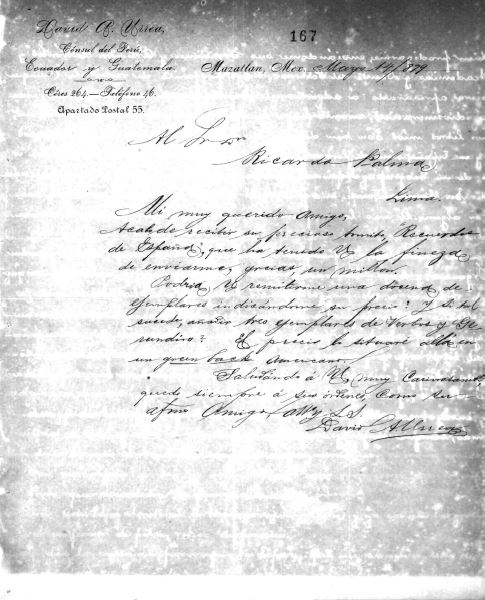 David A. Urrea,
Cónsul del Perú,
Ecuador y Guatemala.
Céres 264.—Teléfono 46.
Apartado Postal 55.
167
Mazatlan, Mex. Mayo 14/899
Al Sr Dr
Ricardo Palma,
Lima.
Mi muy querido Amigo,
Acabo de recibir su precioso tomito, Recuerdos
de España, que ha tenido U la fineza
de enviarme, gracias, un millon.
Podria U remitirme una docena de
ejemplares indicándome su precio? Y si tal
sucede, añadir tres ejemplares de Verbos y Ge-
rundios? El precio lo situaré allá en
un green back Americano.
Saludando á U muy cariñosamte,
quedo siempre á sus órdenes como su
afmo Amigo Atto y S.S.
David A. Urrea